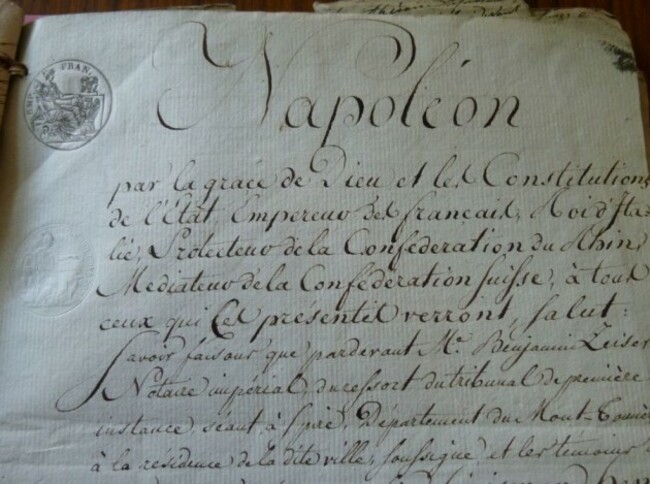 EMP. FRAN.
Napoléon
par la grace de Dieu et les Constitutions
de l'Etat, Empereur des français, Roi d'Ita-
lie, Protecteur de la Confédération du Rhin,
Mediateur de la Confédération Suisse, à tous
ceux qui ces présentes verront, salut:
Savoir faisons que pardevant Me. Benjamin
Notaire impérial, du ressort du tribunal de première
instance séant à Spire, Département du Mont-Tonnerre
à la residence de la dite ville, soussigné et les témoins